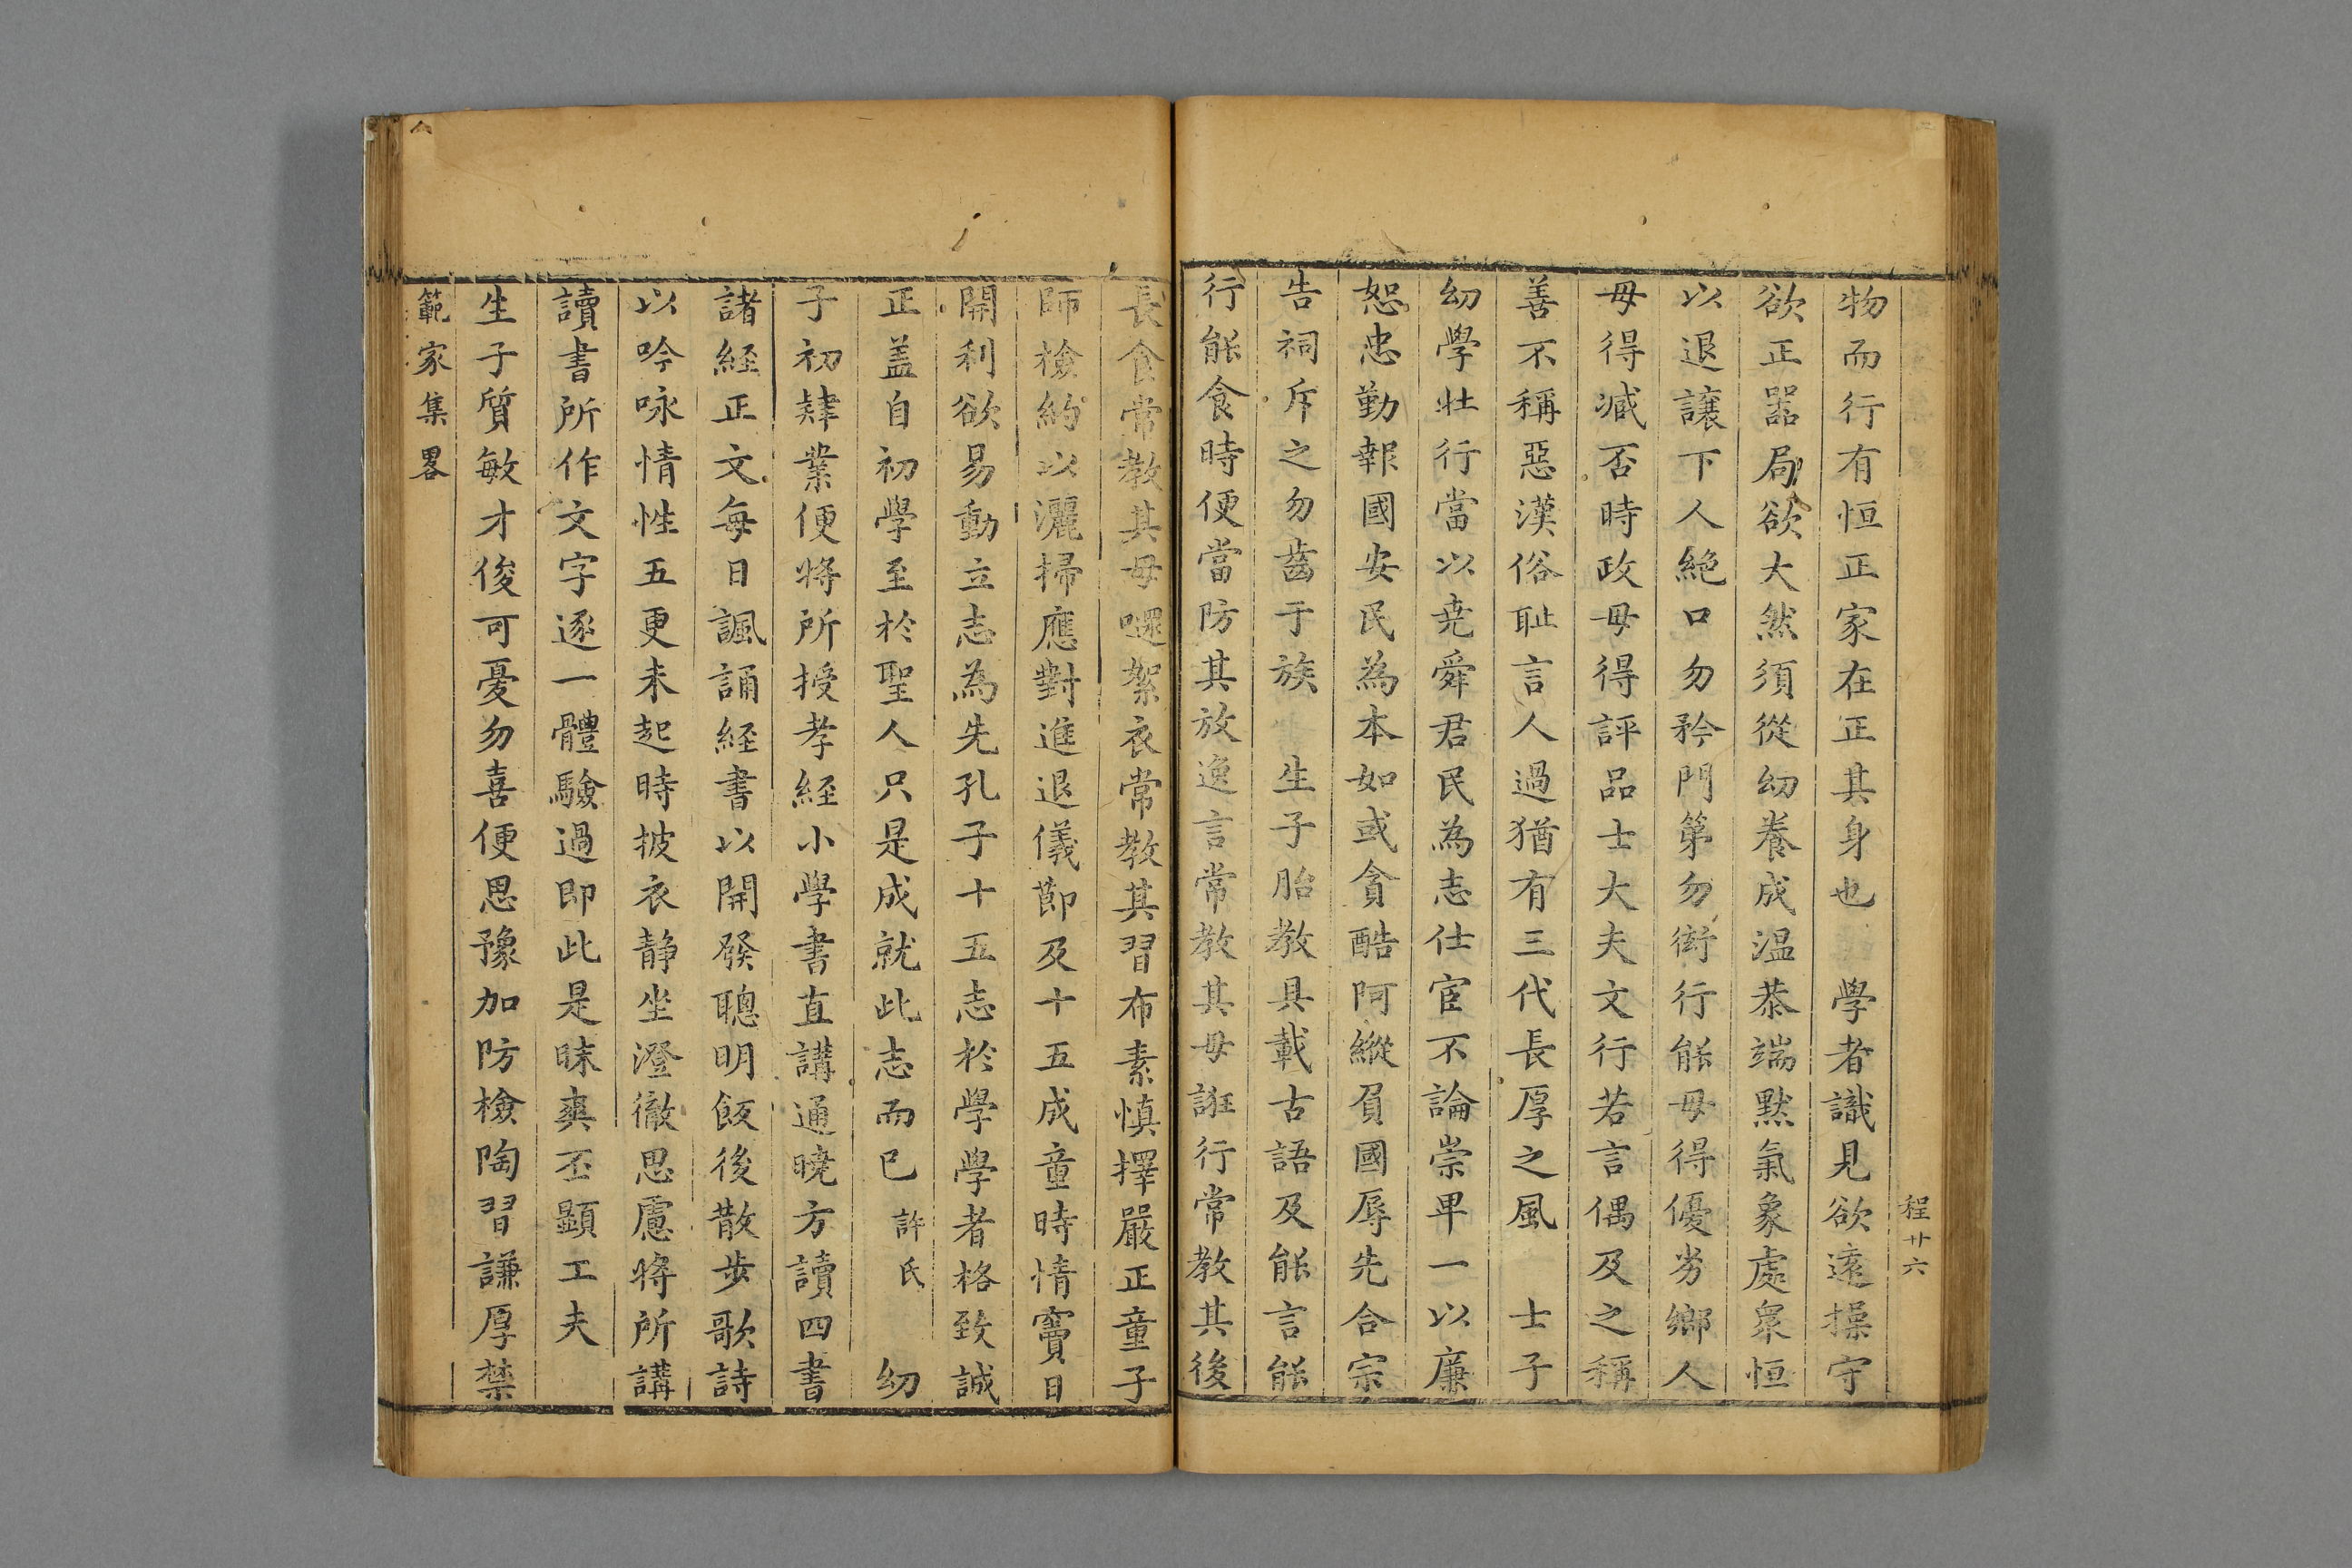 程廿六
物而行有恒正家在正其身也　學者識見欲遠操守
欲正器局欲大然須從幼養成温恭端默氣象處衆恒
以退讓下人絶口勿矜門第勿衒行能毋得優劣鄉人
毋得減否時政毋得評品士大夫文行若言偶及之稱
善不稱惡漢俗耻言人過猶有三代長厚之風　士子
幼學壯行當以尭舜君民為志仕宦不論崇卑一以廉
恕忠勤報國安民為本如或貪酷阿縱負國辱先合宗
告祠斥之勿齒于族　生子胎教具載古語及能言能
行能食時便當防其放逸言常教其毋誑行常教其後
長食常教其毋嘿絮衣常教其習布素慎擇嚴正童子
師檢約以灑掃應對進退儀節及十五成童時情竇日
開利欲易動立志為先孔子十五志於學學者格致誠
正盖自初學至於聖人只是成就此志而已許氏　幼
子初肄業便将所授孝經小學書直講通曉方讀四書
諸經正文每日諷誦經書以開發聰明飯後散步歌詩
以吟咏情性五更未起時披衣静坐澄徹思慮將所講
讀書所作文字逐一體驗過即此是昧爽丕顯工夫
生子質敏才俊可憂勿喜便思豫加防檢陶習謙厚禁
範家集畧